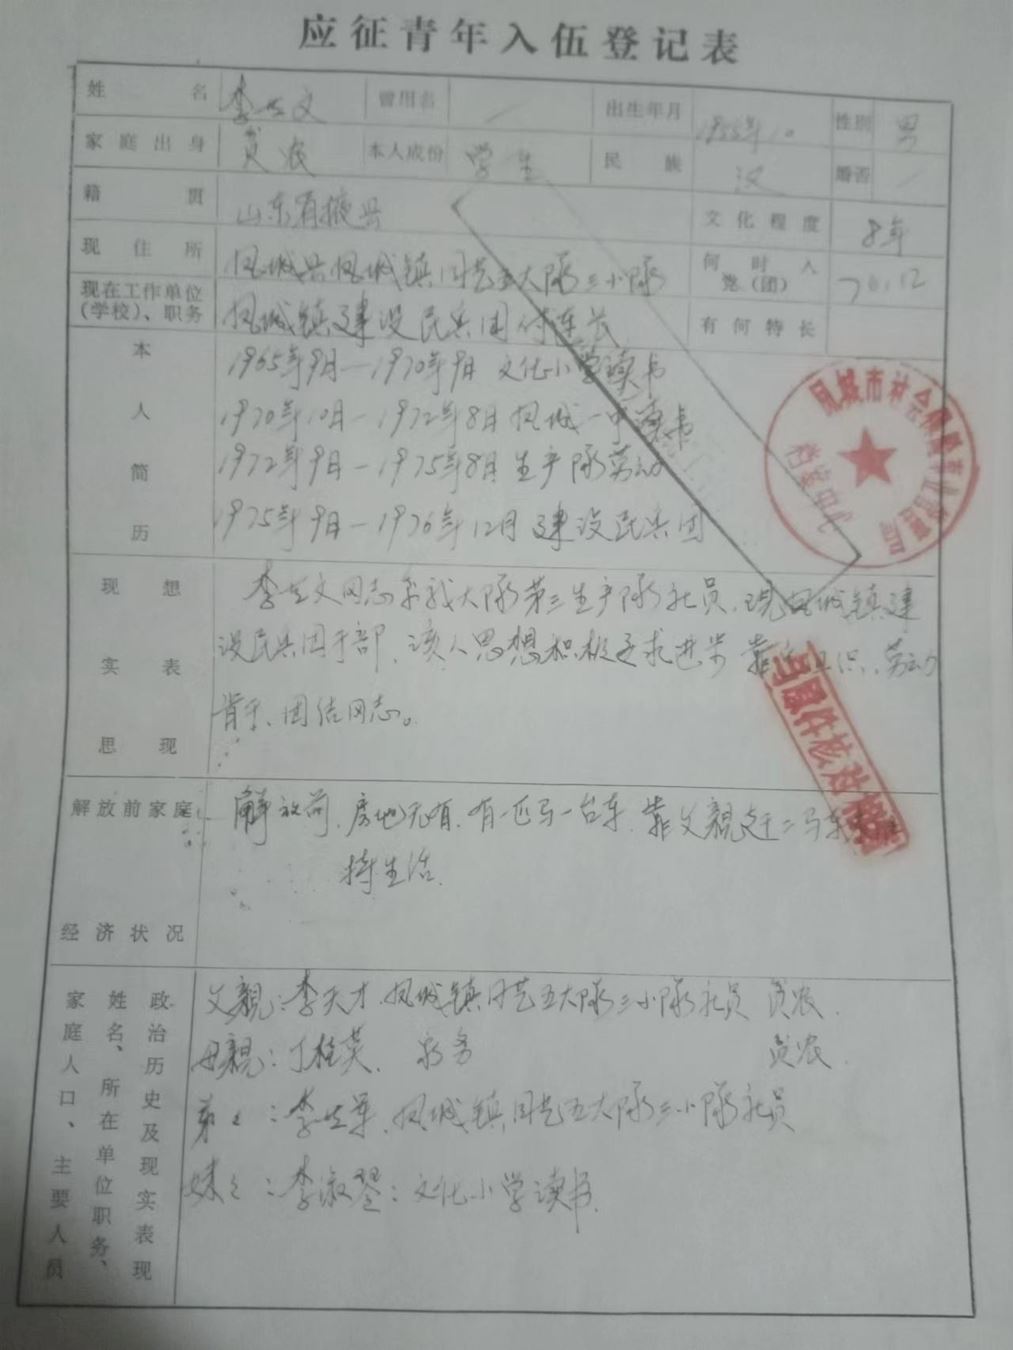 应征青年入伍登记表
姓名 李世文 曾用名 / 出生年月 1955年10 性别 男
家庭出身 贫农 本人成份 学生 民族 汉 婚否 /
籍贯 山东省掖县 文化程度 8年
现住所 凤城县凤城镇园艺五大队三小队 何时入党(团) 76.12
现在工作单位(学校)、职务 凤城镇建设民兵团付连长 有何特长
本人简历
1965年9月—1970年9月 文化小学读书
1970年10月—1972年8月 凤城一中读书
1972年9月—1975年8月 生产队劳动
1975年9月—1976年12月 建设民兵团
现实思想表现
李世文同志系我大队第三生产队社员,现凤城镇建
设民兵团干部,该人思想积极要求进步 靠近组织、劳动
肯干、团结同志。
解放前家庭经济状况
解放前,房地无有,有一匹马一台车,靠父亲赶马车
持生活.
家庭人口、主要人员姓名、所在单位职务、政治历史及现实表现
父亲:李天才.凤城镇园艺五大队三小队社员 贫农.
母亲:丁桂英 家务 贫农.
弟弟:李世军.凤城镇园艺五大队三小队社员
妹妹:李淑琴:文化小学读书.
凤城市社会保险事业管理局
与原件核对